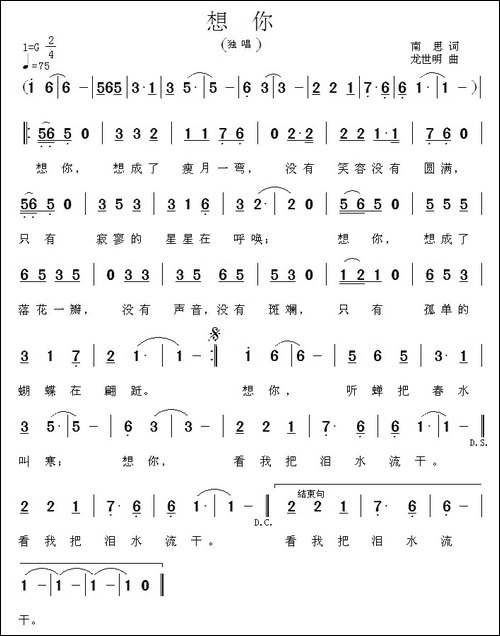 想 你
(独唱)
1=G 2/4
南 思 词
♩=75
龙世明 曲
( 1 6 | 6 - | 565 | 3·1 | 3 5· | 5 - | 6 3 | 3 - | 2 2 1 | 7·6 | 1 - | 1 - )
‖: 56 5 0 | 3 3 2 | 1 1 7 6 | 0 2·2 | 2 2 1·1 | 7 6 0 |
想 你， 想成了 瘦月一弯， 没有 笑容没有 圆满，
56 5 0 | 3 5 3 | 3 1 6 | 3 2· | 2 0 | 5 6 5 0 | 5 5 6 |
只 有 寂寥的 星星在 呼唤； 想 你， 想成了
6 5 3 5 | 0 3 3 | 5 3 5 6 | 5 3 0 | 1 2 1 0 | 6 5 3 |
落花一瓣， 没有 声音，没有 斑斓， 只 有 孤单的
3 1 7 | 2 1· | 1 - :‖ 1 6 | 6 - | 5 6 5 | 3· 1 |
蝴 蝶 在 翩跹。 想 你， 听蝉把 春水
3 5· | 5 - | 6 3 | 3 - | 2 2 1 | 7·6 | 6 1· | 1 - ‖
D.S.
叫 寒； 想 你， 看 我 把 泪 水 流 干。
2 2 1 | 7· 6 | 6 1· | 1 - ‖ 2 2 1 | 7· 6 | 5 6 |
结束句
D.C.
看 我 把 泪 水 流 干。 看 我 把 泪 水 流
1 - | 1 - | 1 - | 1 0 ‖
干。